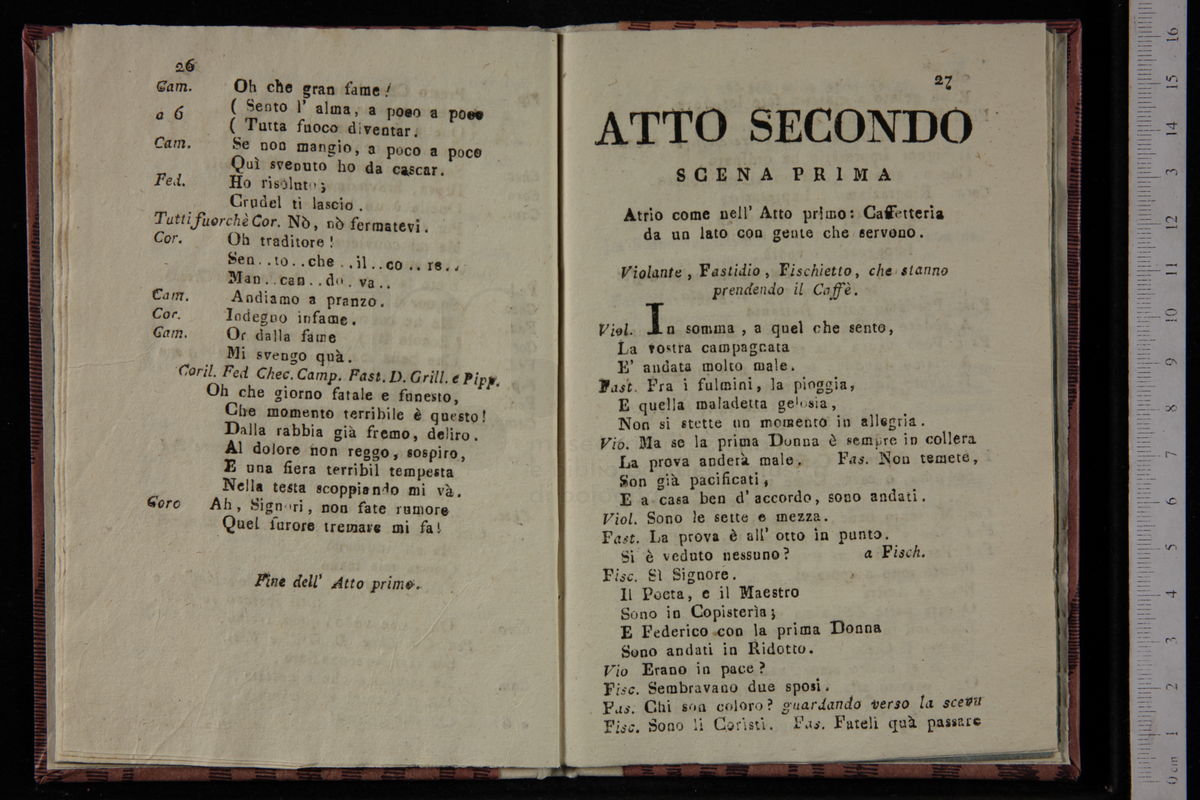 26
Cam. Oh che gran fame!
a 6 ( Sento l' alma, a poco a poco
( Tutta fuoco diventar.
Cam. Se non mangio, a poco a poco
Quì svenuto ho da cascar.
Fed. Ho risoluto;
Crudel ti lascio.
Tutti fuorchè Cor. Nò, nò fermatevi.
Cor. Oh traditore!
Sen..to..che..il..co..re..
Man..can..do.va..
Cam. Andiamo a pranzo.
Cor. Indegno infame.
Cam. Or dalla fame
Mi svengo quà.
Coril. Fed Chec. Camp. Fast. D. Grill. e Pipp.
Oh che giorno fatale e funesto,
Che momento terribile è questo!
Dalla rabbia già fremo, deliro.
Al dolore non reggo, sospiro,
E una fiera terribil tempesta
Nella testa scoppiando mi và.
Coro Ah, Signori, non fate rumore
Quel furore tremare mi fa!
Fine dell' Atto primo.
27
ATTO SECONDO
SCENA PRIMA
Atrio come nell' Atto primo: Caffetteria
da un lato con gente che servono.
Violante, Fastidio, Fischietto, che stanno
prendendo il Caffè.
Viol. In somma, a quel che sento,
La vostra campagnata
E' andata molto male.
Fast. Fra i fulmini, la pioggia,
E quella maladetta gelosia,
Non si stette un momento in allegria.
Vio. Ma se la prima Donna è sempre in collera
La prova anderà male. Fas. Non temete,
Son già pacificati,
E a casa ben d' accordo, sono andati.
Viol. Sono le sette e mezza.
Fast. La prova è all' otto in punto.
Si è veduto nessuno? a Fisch.
Fisc. Sì Signore.
Il Poeta, e il Maestro
Sono in Copisterìa;
E Federico con la prima Donna
Sono andati in Ridotto.
Vio Erano in pace?
Fisc. Sembravano due sposi.
Fas. Chi son coloro? guardando verso la scena
Fisc. Sono li Coristi. Fas. Fateli quà passare
0 cm 1 2 3 4 5 6 7 8 9 10 11 12 13 14 15 16